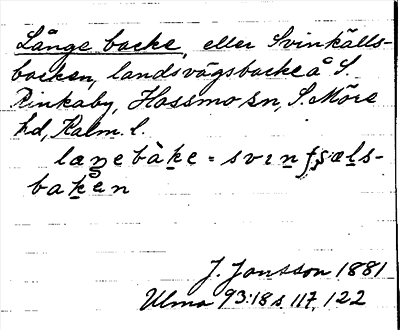 Långe backe, eller Svinkälls-
backen, landsvägsbacke å S.
Rinkaby, Hossmo sn, S. Möre
hd, Kalm. l.
laŋe bàke = svinʃæls-
bakån
J. Jonsson 1881
Ulma 93:18 s. 117, 122